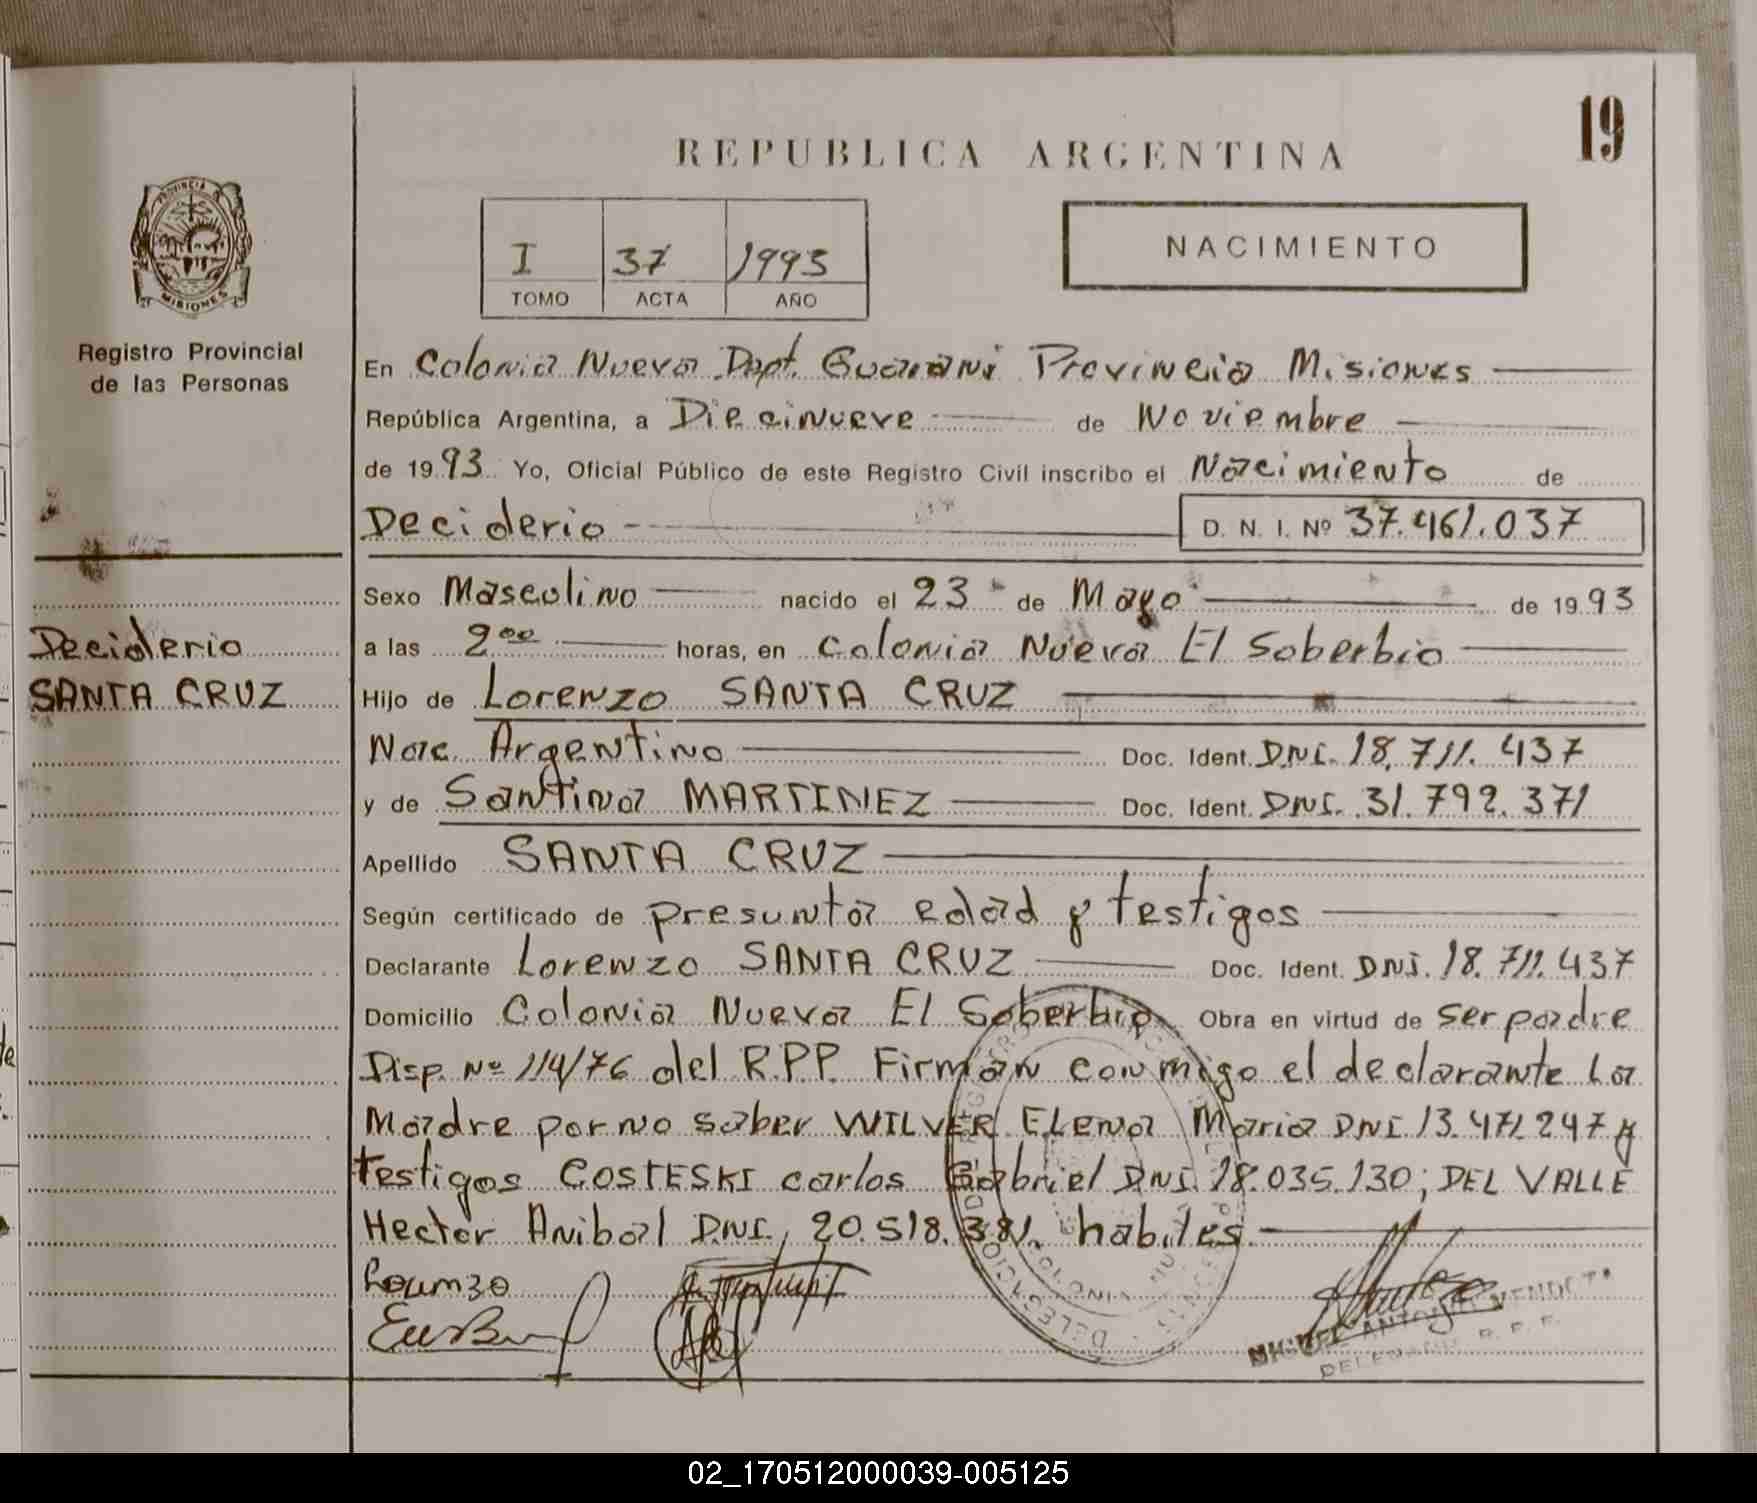 19
REPUBLICA ARGENTINA
PROVINCIA
MISIONES
I 37 1993
TOMO ACTA AÑO
NACIMIENTO
Registro Provincial
de las Personas
En Colonia Nueva Dapt. Guarani Provincia Misiones
República Argentina, a Diecinueve de Noviembre
de 1993 Yo, Oficial Público de este Registro Civil inscribo el Nacimiento de
Deciderio D. N. I. Nº 37.461.037
Sexo Masculino nacido el 23 de Mayo de 1993
Deciderio
SANTA CRUZ
a las 2 00 horas, en Colonia Nueva El Soberbio
Hijo de Lorenzo SANTA CRUZ
Nac. Argentino Doc. Ident. DNI. 18.711.437
y de Santina MARTINEZ Doc. Ident. DNI. 31.792.371
Apellido SANTA CRUZ
Según certificado de presunta edad y testigos
Declarante Lorenzo SANTA CRUZ Doc. Ident. DNI. 18.711.437
Domicilio Colonia Nueva El Soberbio Obra en virtud de ser padre
Disp. Nº 114/76 del R.P.P. Firman conmigo el declarante La
Madre por no saber WILVER Elena Maria DNI 13.471.247 y
testigos COSTESKI carlos Gabriel DNI. 18.035.130; DEL VALLE
Hector Anibal DNI, 20.518.381. habiles
MIGUEL ANTONIO
02_170512000039-005125